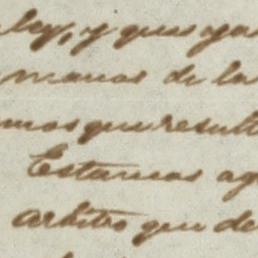 ley, y que ya
manos de la
mos que result
Estamos ag
arbitro que de